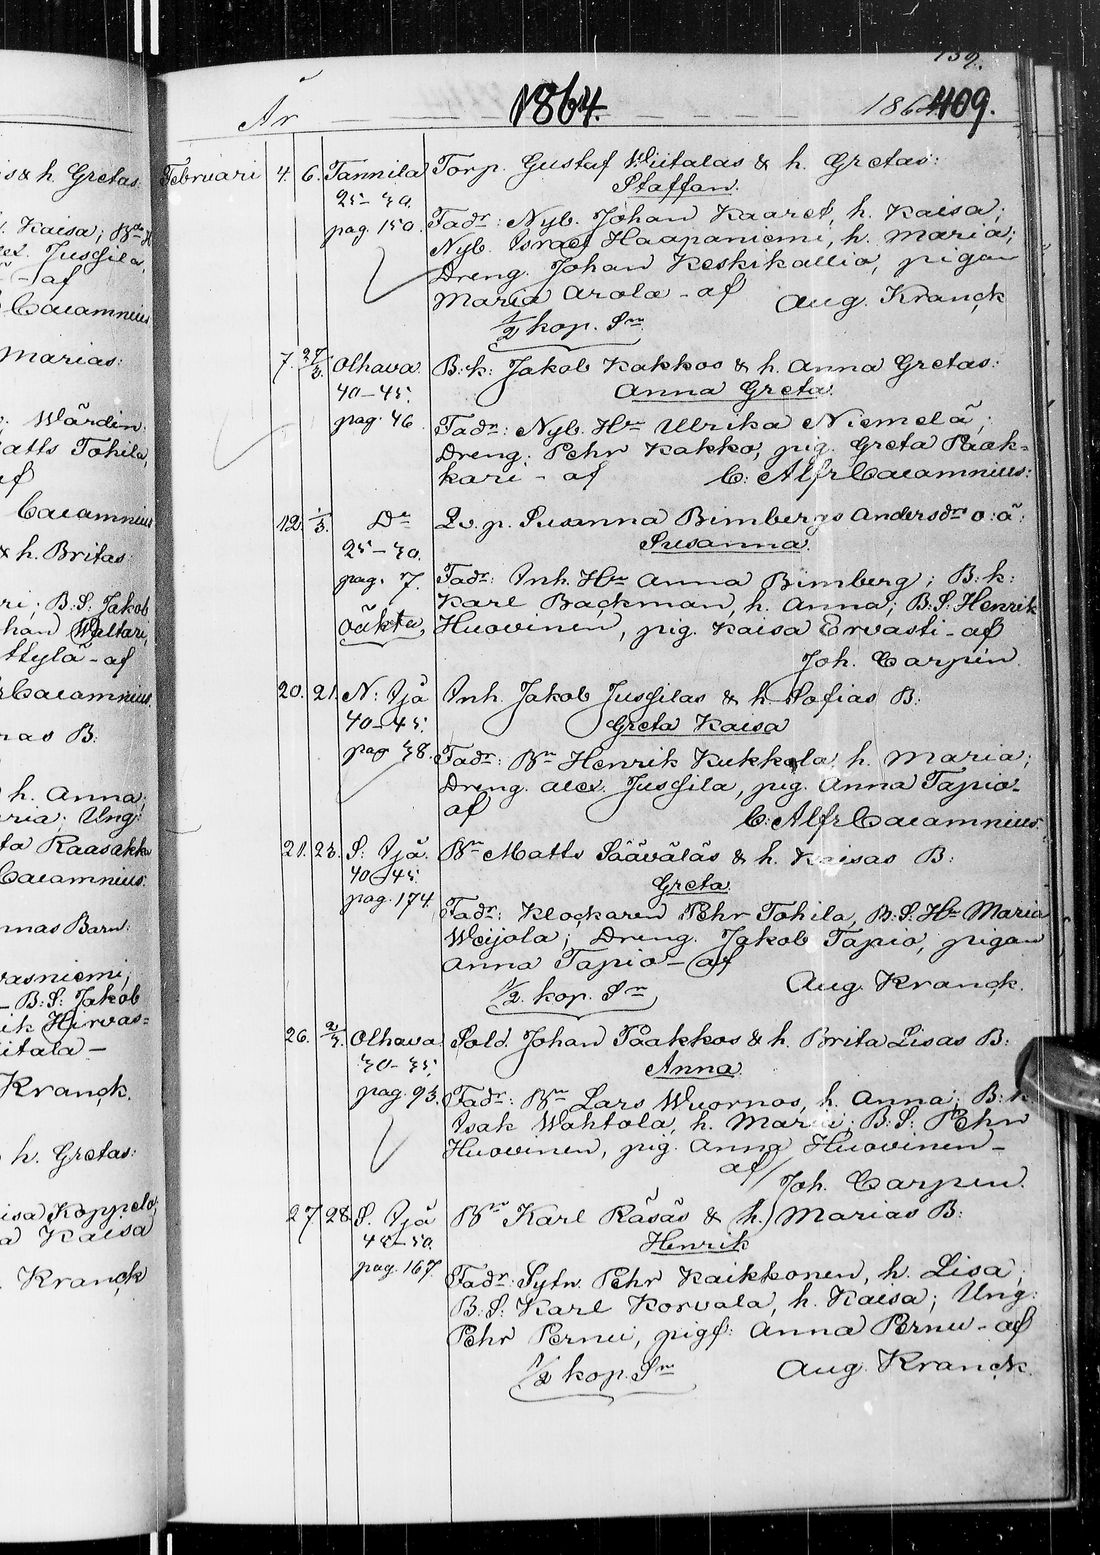 139.
År 1864. 1864 409.
is & h. Gretas.
Kaisa; Bde H
Jusgila,
- af
Cacamnius
Marias:
Wårdin
atts Tohila,
af
Cacamnius
& h. Britas
ri; B.S. Jakob
han Waltari,
ttylä - af
Cacamnius
ras B:
h. Anna;
ria; Ung:
ta Raasakka
Cacamnius.
nnas Barn:
vasniemi;
- B:S: Jakob
ik Hirvas=
itala -
Kranck.
h. Gretas:
isa Koppelo,
a Kaisa
Kranck
Februari 4. 6. Tannila Torp. Gustaf Wiitalas & h. Gretas:
25-30. Staffan.
pag. 150. Fadr: Nyb. Johan Kaaret, h. Kaisa;
Nyb. Israel Haapaniemi, h. Maria;
Dreng. Johan Keskikallio, pigan
Maria Arola - af Aug. Kranck
1/2 kop. Sr
7. 27/3. Olhava B:k: Jakob Kakkos & h. Anna Gretas:
40-45. Anna Greta.
pag. 46 Fadr: Nyb. Hu Ulrika Niemelä;
Dreng. Pehr Kakko, pig. Greta Paak=
kari - af C: Alfr Cacamnius:
12. 1/3. Do Qv. p. Susanna Bimbergs Andersdr o:ä:
25-30. Susanna.
pag. 7. Fadr: Inh. Hu Anna Bimberg; B:k:
Karl Backman, h. Anna; B:S: Henrik
oäkta, Huovinen, pig. Kaisa Ervasti - af
Joh. Carpén.
20. 21. N: Ijå Inh. Jakob Jusgilas & h. Sofias B:
40-45. Greta Kaisa
pag 38. Fadr: Bn Henrik Kukkola, h. Maria;
Dreng. Alex. Jusgila, pig. Anna Tapio-
af C: Alfr Cacamnius.
21. 23. S: Ijå. Bn Matts Sääväläs & h. Kaisas B:
40-45. Greta
pag. 174. Fadr: Klockaren Pehr Tohila, B:S: Hu Maria
Weijola; Dreng. Jakob Tapio, pigan
Anna Tapio - af Aug. Kranck.
1/2. kop. Sr
26. 2/3. Olhava Sold. Johan Paakkos & h. Brita Lisas B:
30-35. Anna.
pag. 93. Fadr: Bn Lars Wuornos, h. Anna; B:k
Isak Wahtola, h. Maria; B:S: Pehr
Huovinen, pig. Anna Huovinen -
af Joh. Carpén.
27 28 S. Ijå Bn Karl Räsäs & h. Marias B:
45-50. Henrik
pag. 167. Fadr: Sytn. Pehr Kaikkonen, h. Lisa;
B:S: Karl Korvala, h. Kaisa; Ung:
Pehr Pernu, pigf: Anna Pernu - af
1/2 kop. Sr Aug. Kranck.